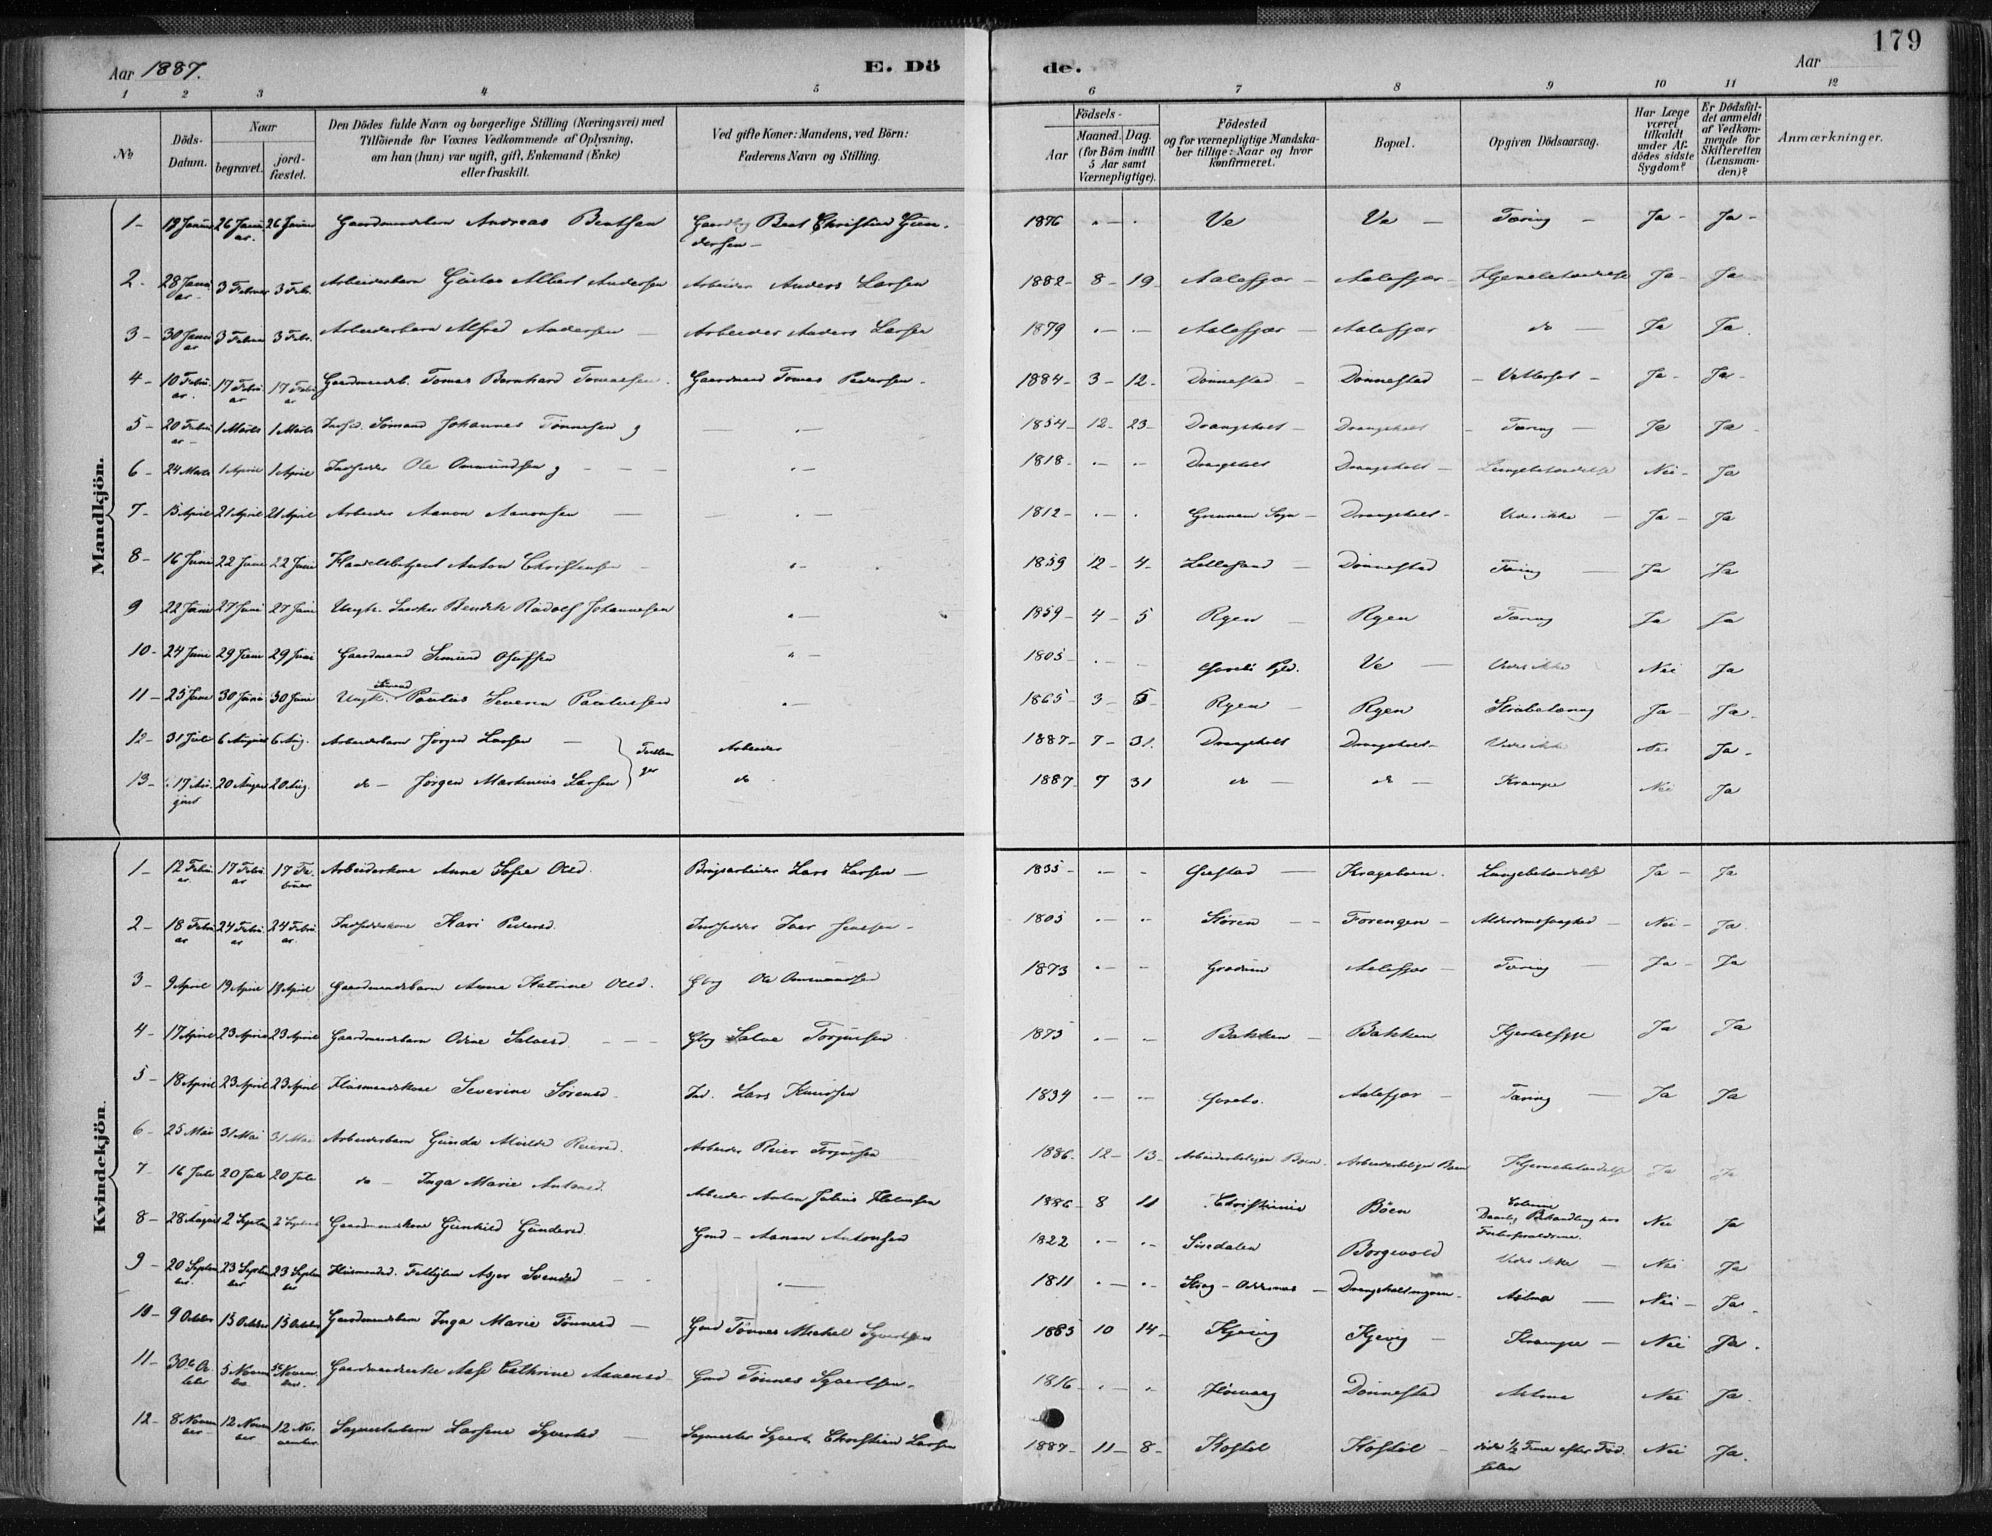 179
Aar 1887.
E. Dö
de.
Aar
1 2 3 4 5 6 7 8 9 10 11 12
No
Döds-Datum.
Naar
begravet.
jord-fæstet.
Den Dödes fulde Navn og borgerlige Stilling (Næringsvei) med
Tilföiende for Voxnes Vedkommende af Oplysning,
om han (hun) var ugift, gift, Enkemand (Enke)
eller fraskilt.
Ved gifte Koner: Mandens, ved Börn:
Faderens Navn og Stilling.
Födsels-
Aar
Maaned. Dag.
(for Börn indtil
5 Aar samt
Værnepligtige).
Födested
og for værnepligtige Mandska-
ber tillige: Naar og hvor
konfirmeret.
Bopæl.
Opgiven Dödsaarsag.
Har Læge
været
tilkaldt
under Af-
dödes sidste
Sygdom?
Er Dödsfal-
det anmeldt
af Vedkom-
mende for
Skifteretten
(Lensman-
den)?
Anmærkninger.
Mandkjön.
1- 26 Januar 26 Januar Gaardmandsbarn Andreas Bentsen Bent Christian Gundersen 1876 Ve Ve Tæring Ja Ja
2- 28 Januar 3 Februar 3 Febr. Arbeiderbarn Gustav Albert Andersen Arbeider Anders Larsen 1882 8 19 Aalefjær Aalefjær Hjernebetændelse Ja Ja
3- 30 Januar 3 Februar 3 Febr. Arbeiderbarn Alfred Andersen Arbeider Anders Larsen 1879 Aalefjær Aalefjær do Ja Ja
4- 10 Februar 17 Februar 17 Februar Gaardmandsb. Tomas Bernhard Tomassen Gaardmand Tomas Pedersen 1884 3 12 Dönnestad Dönnestad Ja Ja
5- 20 Februar 1 Marts 1 Marts Sömand Johannes Tönnesen g 1854 12 23 Drangsholt Drangsholt Tæring Ja Ja
6- 24 Marts 1 April 1 April Indsidder Ole Omundsen g 1818 Drangsholt Drangsholt Lungebetændelse Nei Ja
7- 15 April 21 April 21 April Arbeider Aanon Aanonsen 1812 Sogn Drangsholt Vides ikke Ja Ja
8- 16 Juni 22 Juni 22 Juni Handelsbetjent Anton Christensen 1859 12 4 Lillesand Dönnestad Tæring Ja Ja
9 22 Juni 27 Juni 27 Juni Ungk. Bendik Rudolf Johannesen 1859 4 5 Ryen Ryen Tæring Ja Ja
10- 24 Juni 29 Juni 29 Juni Gaardmand 1805 Ve Vides ikke Nei Ja
11- 25 Juni 30 Juni 30 Juni Ungk. Sömand Paulus Severin Paulussen 1865 3 5 Ryen Ryen Strubetæring Ja Ja
12- 31 Juli 6 August 6 Aug. Arbeiderbarn Jörgen Larsen Tvillinger Arbeider 1887 7 31 Drangsholt Drangsholt Vides ikke Nei Ja
13- 17 August 20 August 20 Aug. do Jörgen Martinius Larsen do 1887 7 31 do do Krampe Nei Ja
Kvindekjön.
1- 12 Februar 17 Februar 17 Februar Arbeiderkone Anne Sofie Olsd. Brugsarbeider Lars Larsen 1835 Krageboen. Lungebetændelse Ja Ja
2- 18 Februar 24 Februar 24 Februar Indsidderkone Kari Pedersd. Indsidder Iver Jensen 1805 Stören Forengen Alderdomssvaghed Nei Ja
3- 9 April 19 April 19 April Gaardmandsbarn Anna Katrine Olsd. Gbrg Ole Ommundsen 1873 Aalefjær Tæring Ja Ja
4- 17 April 23 April 23 April Gaardmandsbarn Odine Salvesd. Gbrg Salve Torjusen 1875 Bakken Bakken Kjertelsyge Ja Ja
5- 18 April 23 April 23 April Husmandskone Severine Sörensd. Ind. Lars Knudsen 1834 Aalefjær Tæring Ja Ja
6- 25 Mai 31 Mai 31 Mai Arbeiderbarn Gunda Reiersd. Arbeider Reier Torjusen 1886 12 13 Arbeiderboligen Boen Arbeiderboligen Boen Hjernebetændelse Ja Ja
7 16 Juli 20 Juli 20 Juli do Inga Marie Antonsd. Arbeider Anton Julius 1886 8 11 Christiania Böen Daarlig Behandling hos Nei Ja
8- 28 August 2 Septem 2 Septem Gaardmandskone Gunhild Gundersd Gmd Aanon Antonsen 1822 Borgevold Vides ikke Nei Ja
9- 20 September 23 September 23 September Husmandsd. Asper Svendsd 1811 Astma Nei Ja
10- 9 October 15 October 15 October Gaardmandsbarn Inga Marie Tönnesd Gmd Tönnes Mickel Syvertsen 1885 10 14 Kjevig Kjevig Krampe Nei Ja
11- 30te October 5 November 5te November Gaardmandsenke Aase Cathrine Aanensd Gmd Tönnes Syvertsen 1816 Hövaag Dönnestad Astma Nei Ja
12- 8 November 12 November 12 November Sagmesterbarn Larsine Syvertsd Sagmester Syvert Christian Larsen 1887 11 8 Kostöl Kostöl döde ½ Time efter Födselen Nei Ja